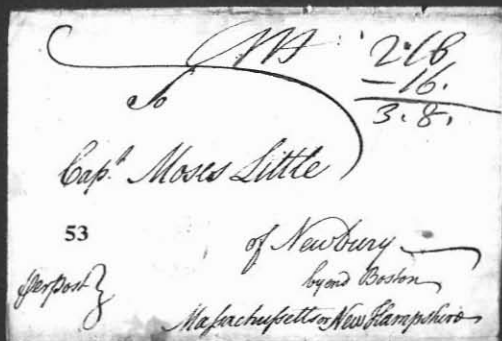 2:16
—16.
3.8.
To
Capt. Moses Little
53
of Newbury
beyond Boston
per post
Massachusetts or New Hampshire